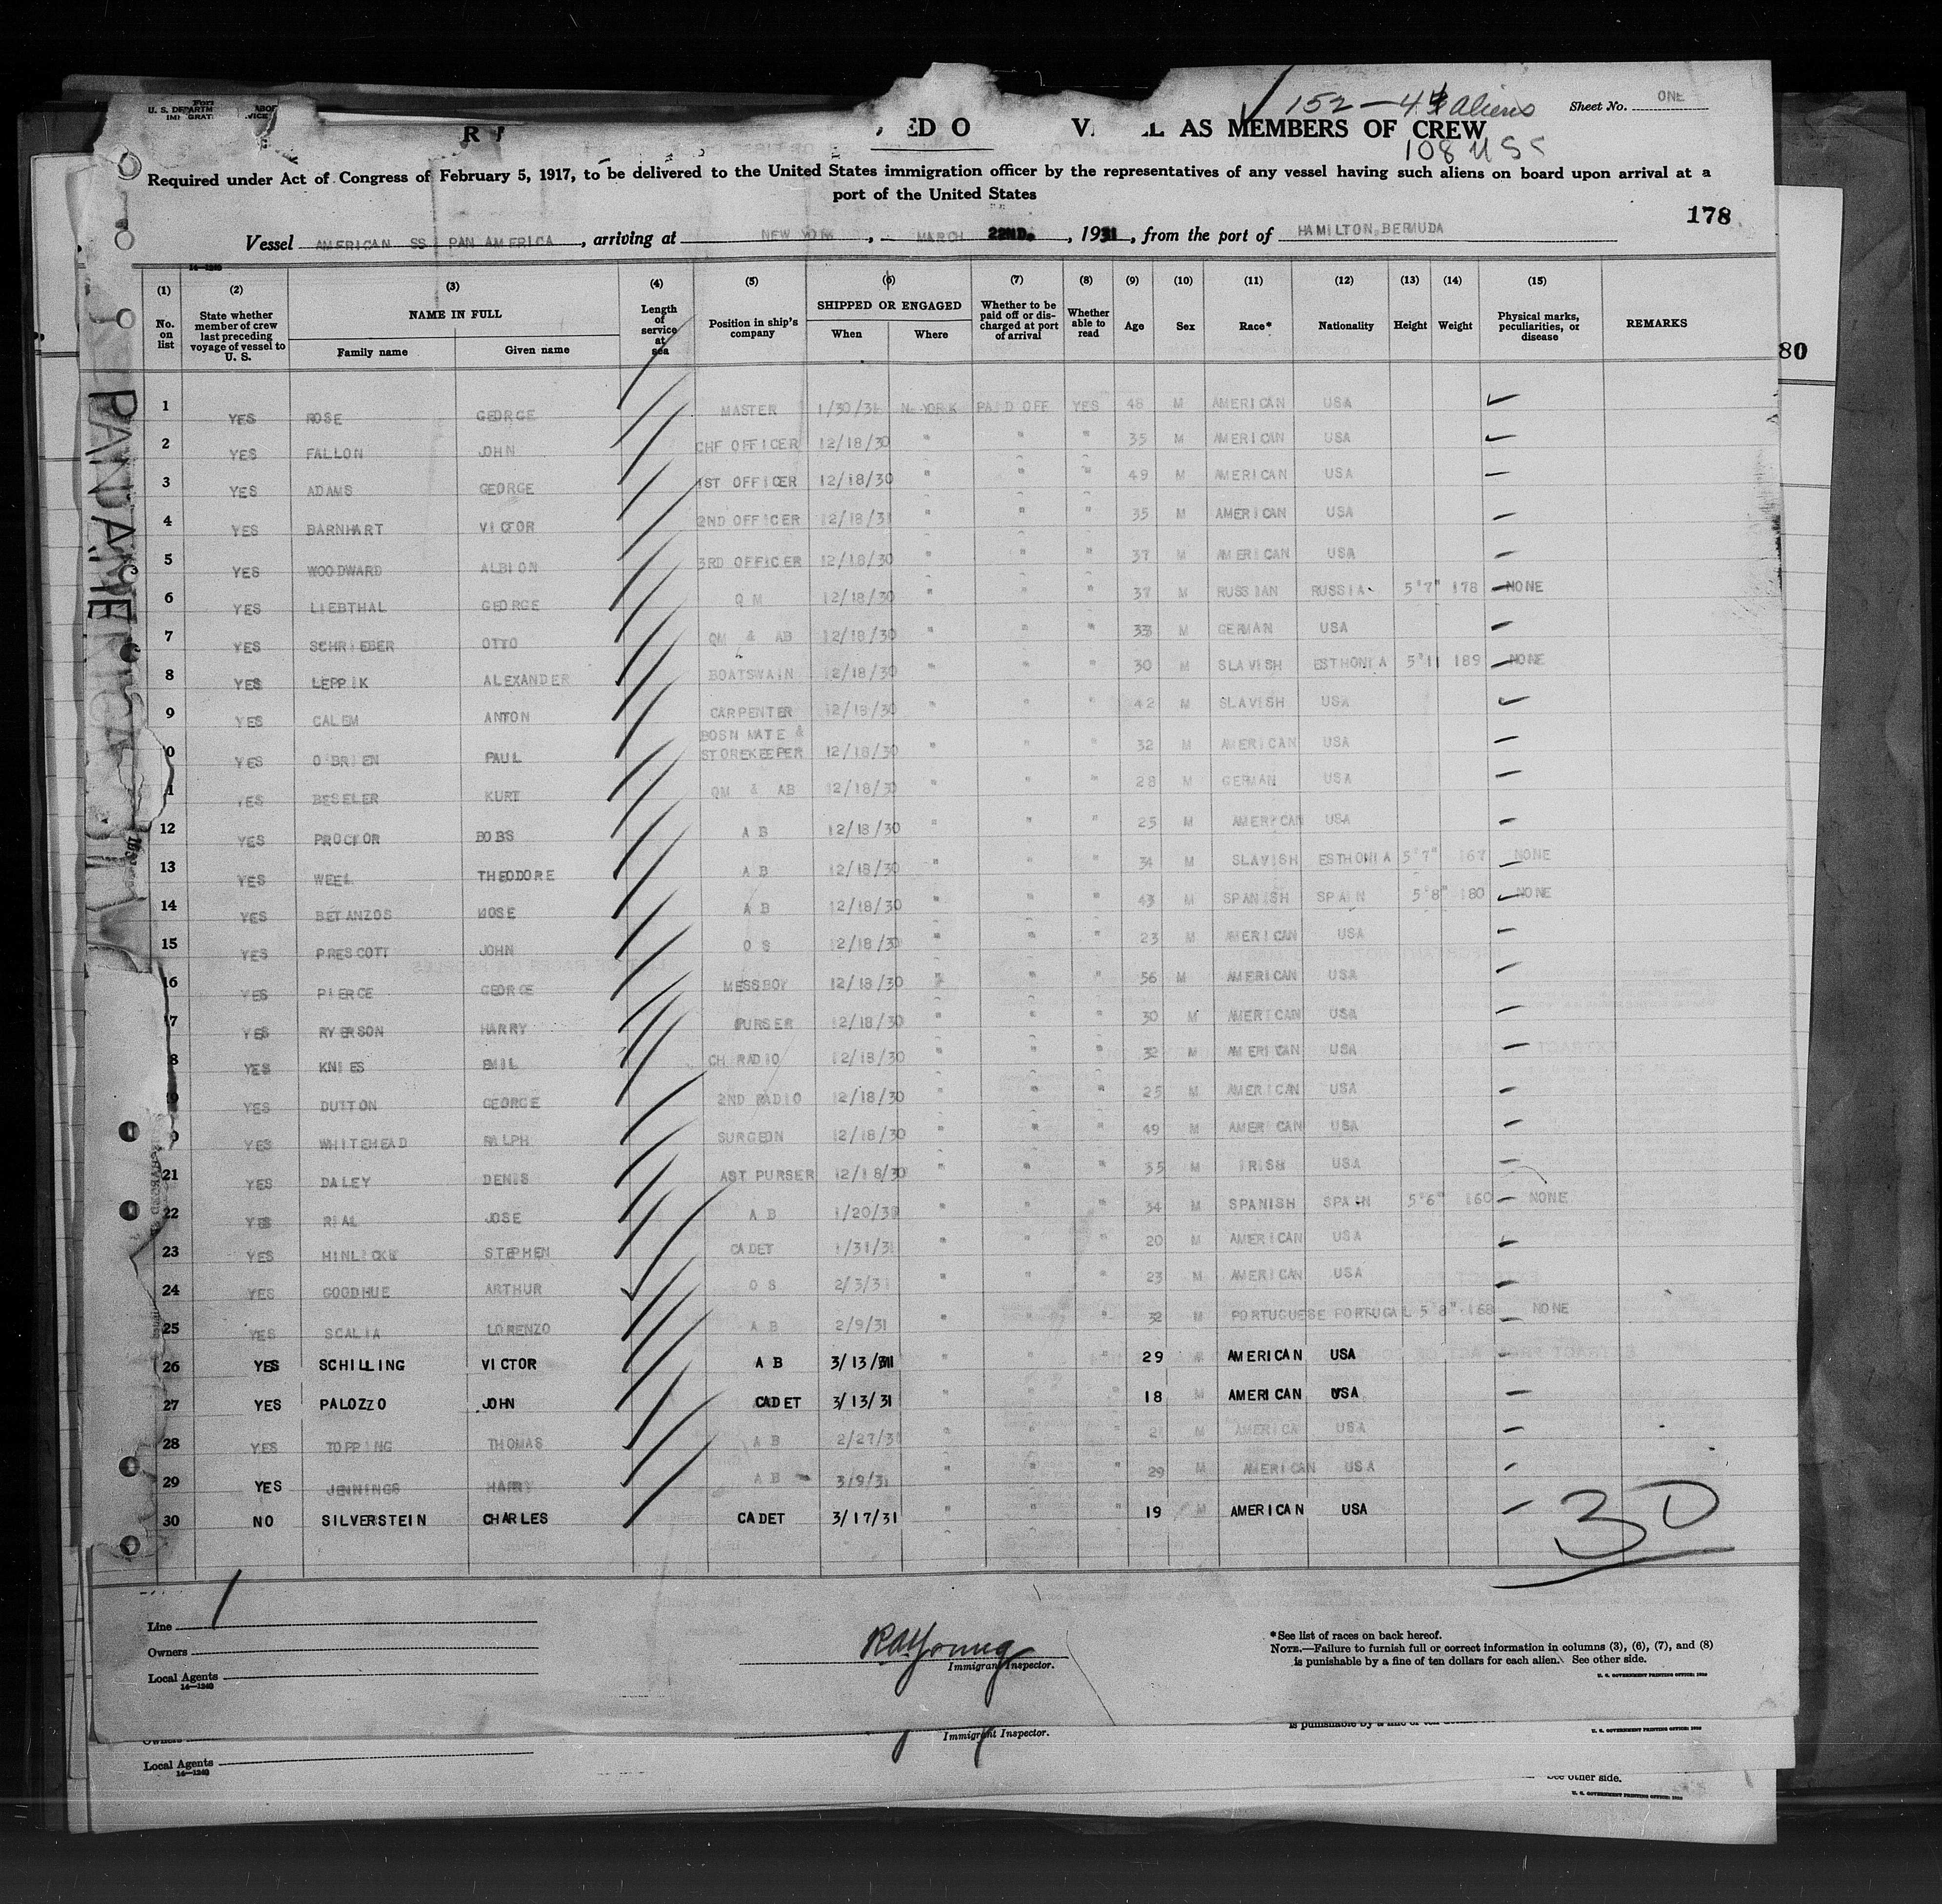 152 - 44 aliens
Sheet No. ONE
ED O V L AS MEMBERS OF CREW
108 USC
Required under Act of Congress of February 5, 1917, to be delivered to the United States immigration officer by the representatives of any vessel having such aliens on board upon arrival at a
port of the United States
178
Vessel AMERICAN SS PAN AMERICA, arriving at NEW YORK, MARCH 22ND. , 1931, from the port of HAMILTON, BERMUDA
14-1240
(1) No. on list
(2) State whether member of crew last preceding voyage of vessel to U. S.
(3) NAME IN FULL Family name Given name
(4) Length of service at sea
(5) Position in ship's company
(6) SHIPPED OR ENGAGED When Where
(7) Whether to be paid off or discharged at port of arrival
(8) Whether able to read
(9) Age
(10) Sex
(11) Race*
(12) Nationality
(13) Height
(14) Weight
(15) Physical marks, peculiarities, or disease
REMARKS
80
1 YES ROSE GEORGE MASTER 1/30/31 N.YORK PAID OFF YES 48 M AMERICAN USA
2 YES FALLON JOHN CHF OFFICER 12/18/30 " " " 35 M AMERICAN USA
3 YES ADAMS GEORGE 1ST OFFICER 12/18/30 " " " 49 M AMERICAN USA
4 YES BARNHART VICTOR 2ND OFFICER 12/18/31 " " " 35 M AMERICAN USA
5 YES WOODWARD ALBION 3RD OFFICER 12/18/30 " " " 37 M AMERICAN USA
6 YES LIEBTHAL GEORGE Q M 12/18/30 " " " 37 M RUSSIAN RUSSIA 5'7" 178 NONE
7 YES SCHRIEBER OTTO QM & AB 12/18/30 " " " 33 M GERMAN USA
8 YES LEPPIK ALEXANDER BOATSWAIN 12/18/30 " " " 30 M SLAVISH ESTHONIA 5'11 189 NONE
9 YES CALEM ANTON CARPENTER 12/18/30 " " " 42 M SLAVISH USA
0 YES O'BRIEN PAUL BOSN MATE & STOREKEEPER 12/18/30 " " " 32 M AMERICAN USA
1 YES BESELER KURT QM & AB 12/18/30 " " " 28 M GERMAN USA
12 YES PROCTOR BOBS A B 12/18/30 " " " 25 M AMERICAN USA
13 YES WEEL THEODORE A B 12/18/30 " " " 34 M SLAVISH ESTHONIA 5'7" 167 NONE
14 YES BETANZOS JOSE A B 12/18/30 " " " 43 M SPANISH SPAIN 5'8" 180 NONE
15 YES PRESCOTT JOHN O S 12/18/30 " " " 23 M AMERICAN USA
16 YES PIERCE GEORGE MESSBOY 12/18/30 " " " 56 M AMERICAN USA
7 YES RYERSON HARRY PURSER 12/18/30 " " " 30 M AMERICAN USA
8 YES KNIES EMIL CH RADIO 12/18/30 " " " 32 M AMERICAN USA
9 YES DUTTON GEORGE 2ND RADIO 12/18/30 " " " 25 M AMERICAN USA
0 YES WHITEHEAD RALPH SURGEON 12/18/30 " " " 49 M AMERICAN USA
21 YES DALEY DENIS AST PURSER 12/18/30 " " " 35 M IRISH USA
22 YES RIAL JOSE A B 1/20/31 " " " 34 M SPANISH SPAIN 5'6" 160 NONE
23 YES HINLICKE STEPHEN CADET 1/31/31 " " " 20 M AMERICAN USA
24 YES GOODHUE ARTHUR O S 2/3/31 " " " 23 M AMERICAN USA
25 YES SCALIA LORENZO A B 2/9/31 " " " 32 M PORTUGUESE PORTUGAL 5'8" 168 NONE
26 YES SCHILLING VICTOR A B 3/13/31 " " " 29 M AMERICAN USA
27 YES PALOZZO JOHN CADET 3/13/31 " " " 18 M AMERICAN USA
28 YES TOPPING THOMAS A B 2/27/31 " " " 21 M AMERICA USA
29 YES JENNINGS HARRY A B 3/9/31 " " " 29 M AMERICAN USA
30 NO SILVERSTEIN CHARLES CADET 3/17/31 " " " 19 M AMERICAN USA
30
Line
Owners
Local Agents
14-1240
R A Young
Immigrant Inspector.
*See list of races on back hereof.
NOTE.—Failure to furnish full or correct information in columns (3), (6), (7), and (8)
is punishable by a fine of ten dollars for each alien. See other side.
U. S. GOVERNMENT PRINTING OFFICE: 1930
Owners
Immigrant Inspector.
Local Agents
14-1240
U. S. GOVERNMENT PRINTING OFFICE: 1930
See other side.
U. S. GOVERNMENT PRINTING OFFICE: 1930